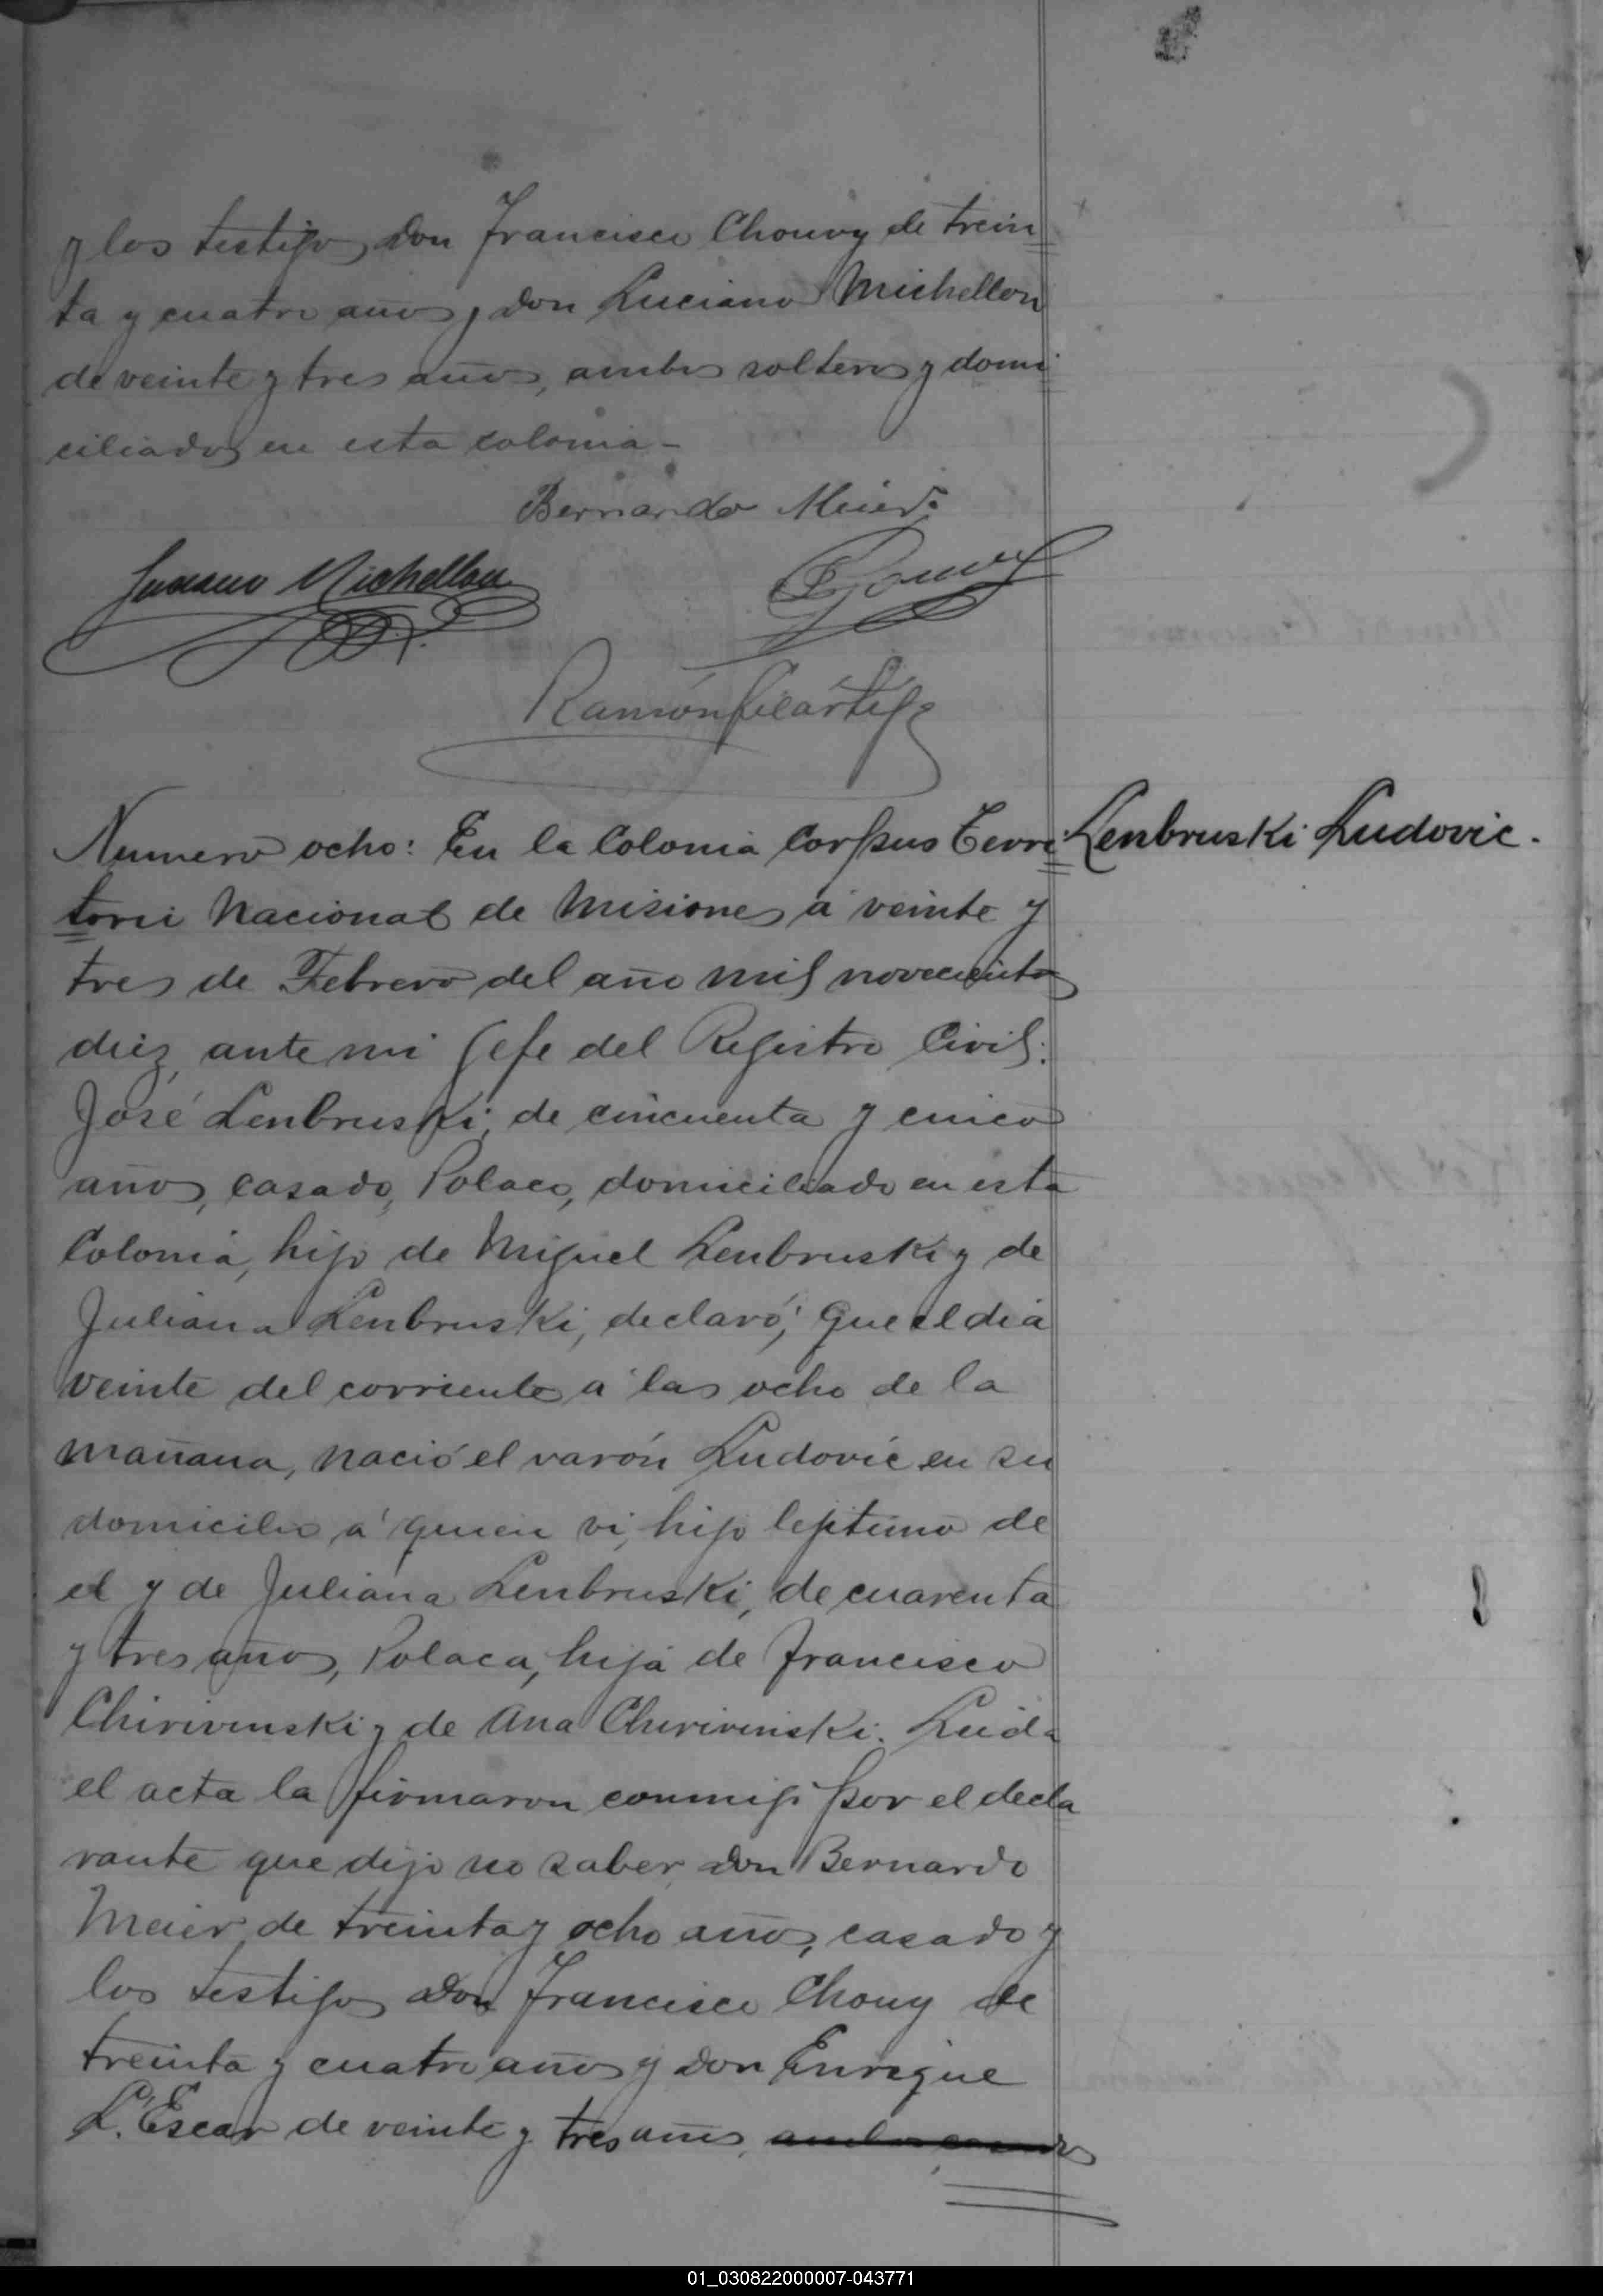 y los testigos don Francisco Chouvy de trein
ta y cuatro años y don Luciano Michellon
de veinte y tres años, ambos solteros y domi
ciliados en esta colonia -
Bernardo Meier
Luciano Michellon
Ramón
Numero ocho: En la Colonia Corpus Terri
torii Nacional de Misiones á veinte y
tres de Febrero del año mil novecientos
diez, ante mi Gefe del Registro Civil:
José Lenbruski, de cincuenta y cinco
años, casado, Polaco, domiciliado en esta
Colonia, hijo de Miguel Lenbruski y de
Juliana Lenbruski, declaró; que el dia
veinte del corriente á las ocho de la
mañana, nació el varón Ludovic en su
domicilio á quien vi, hijo lejitimo de
el y de Juliana Lenbruski, de cuarenta
y tres años, Polaca, hija de Francisco
Chirivinski y de Ana Chirivinski. Leida
el acta la firmaron conmigo por el decla
rante que dijo no saber, don Bernardo
Meier de treinta y ocho años, casado y
los testigos don Francisco Chouy de
treinta y cuatro años y don Enrique
L. Escar de veinte y tres años,
Lenbruski Ludovic.
01_030822000007-043771